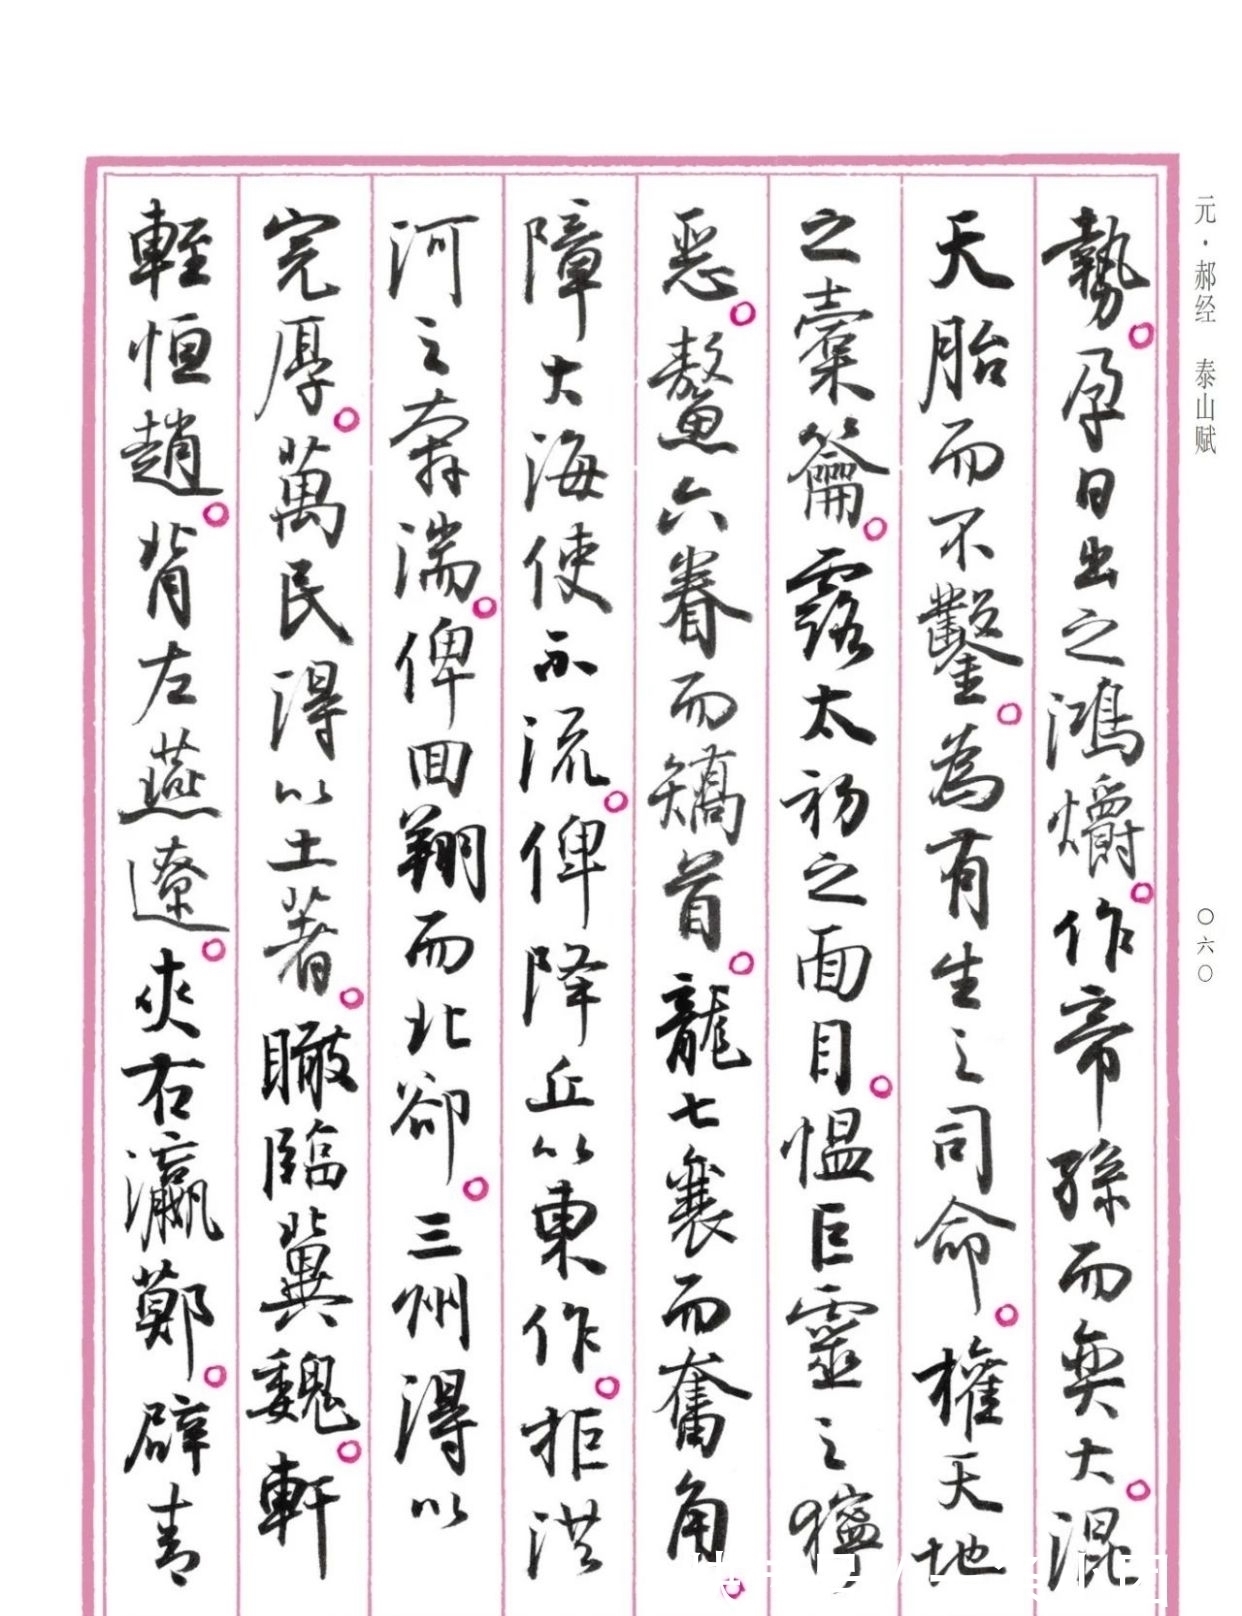 元·郝经 泰山赋
〇六〇
勢。孕日出之鴻爝。作帝孫而奠大。混
天胎而不鑿。為有生之司命。權天地
之橐籥。露太初之面目。愠巨靈之獰
惡。鰲六眷而矯首。龍七襄而奮角。
障大海使不流。俾降丘以東作。拒洪
河之奔湍。俾回翔而北卻。三州得以
完厚。萬民得以土著。瞰臨冀魏。軒
輊恒趙。背左燕遼。夾右瀛鄭。辟青